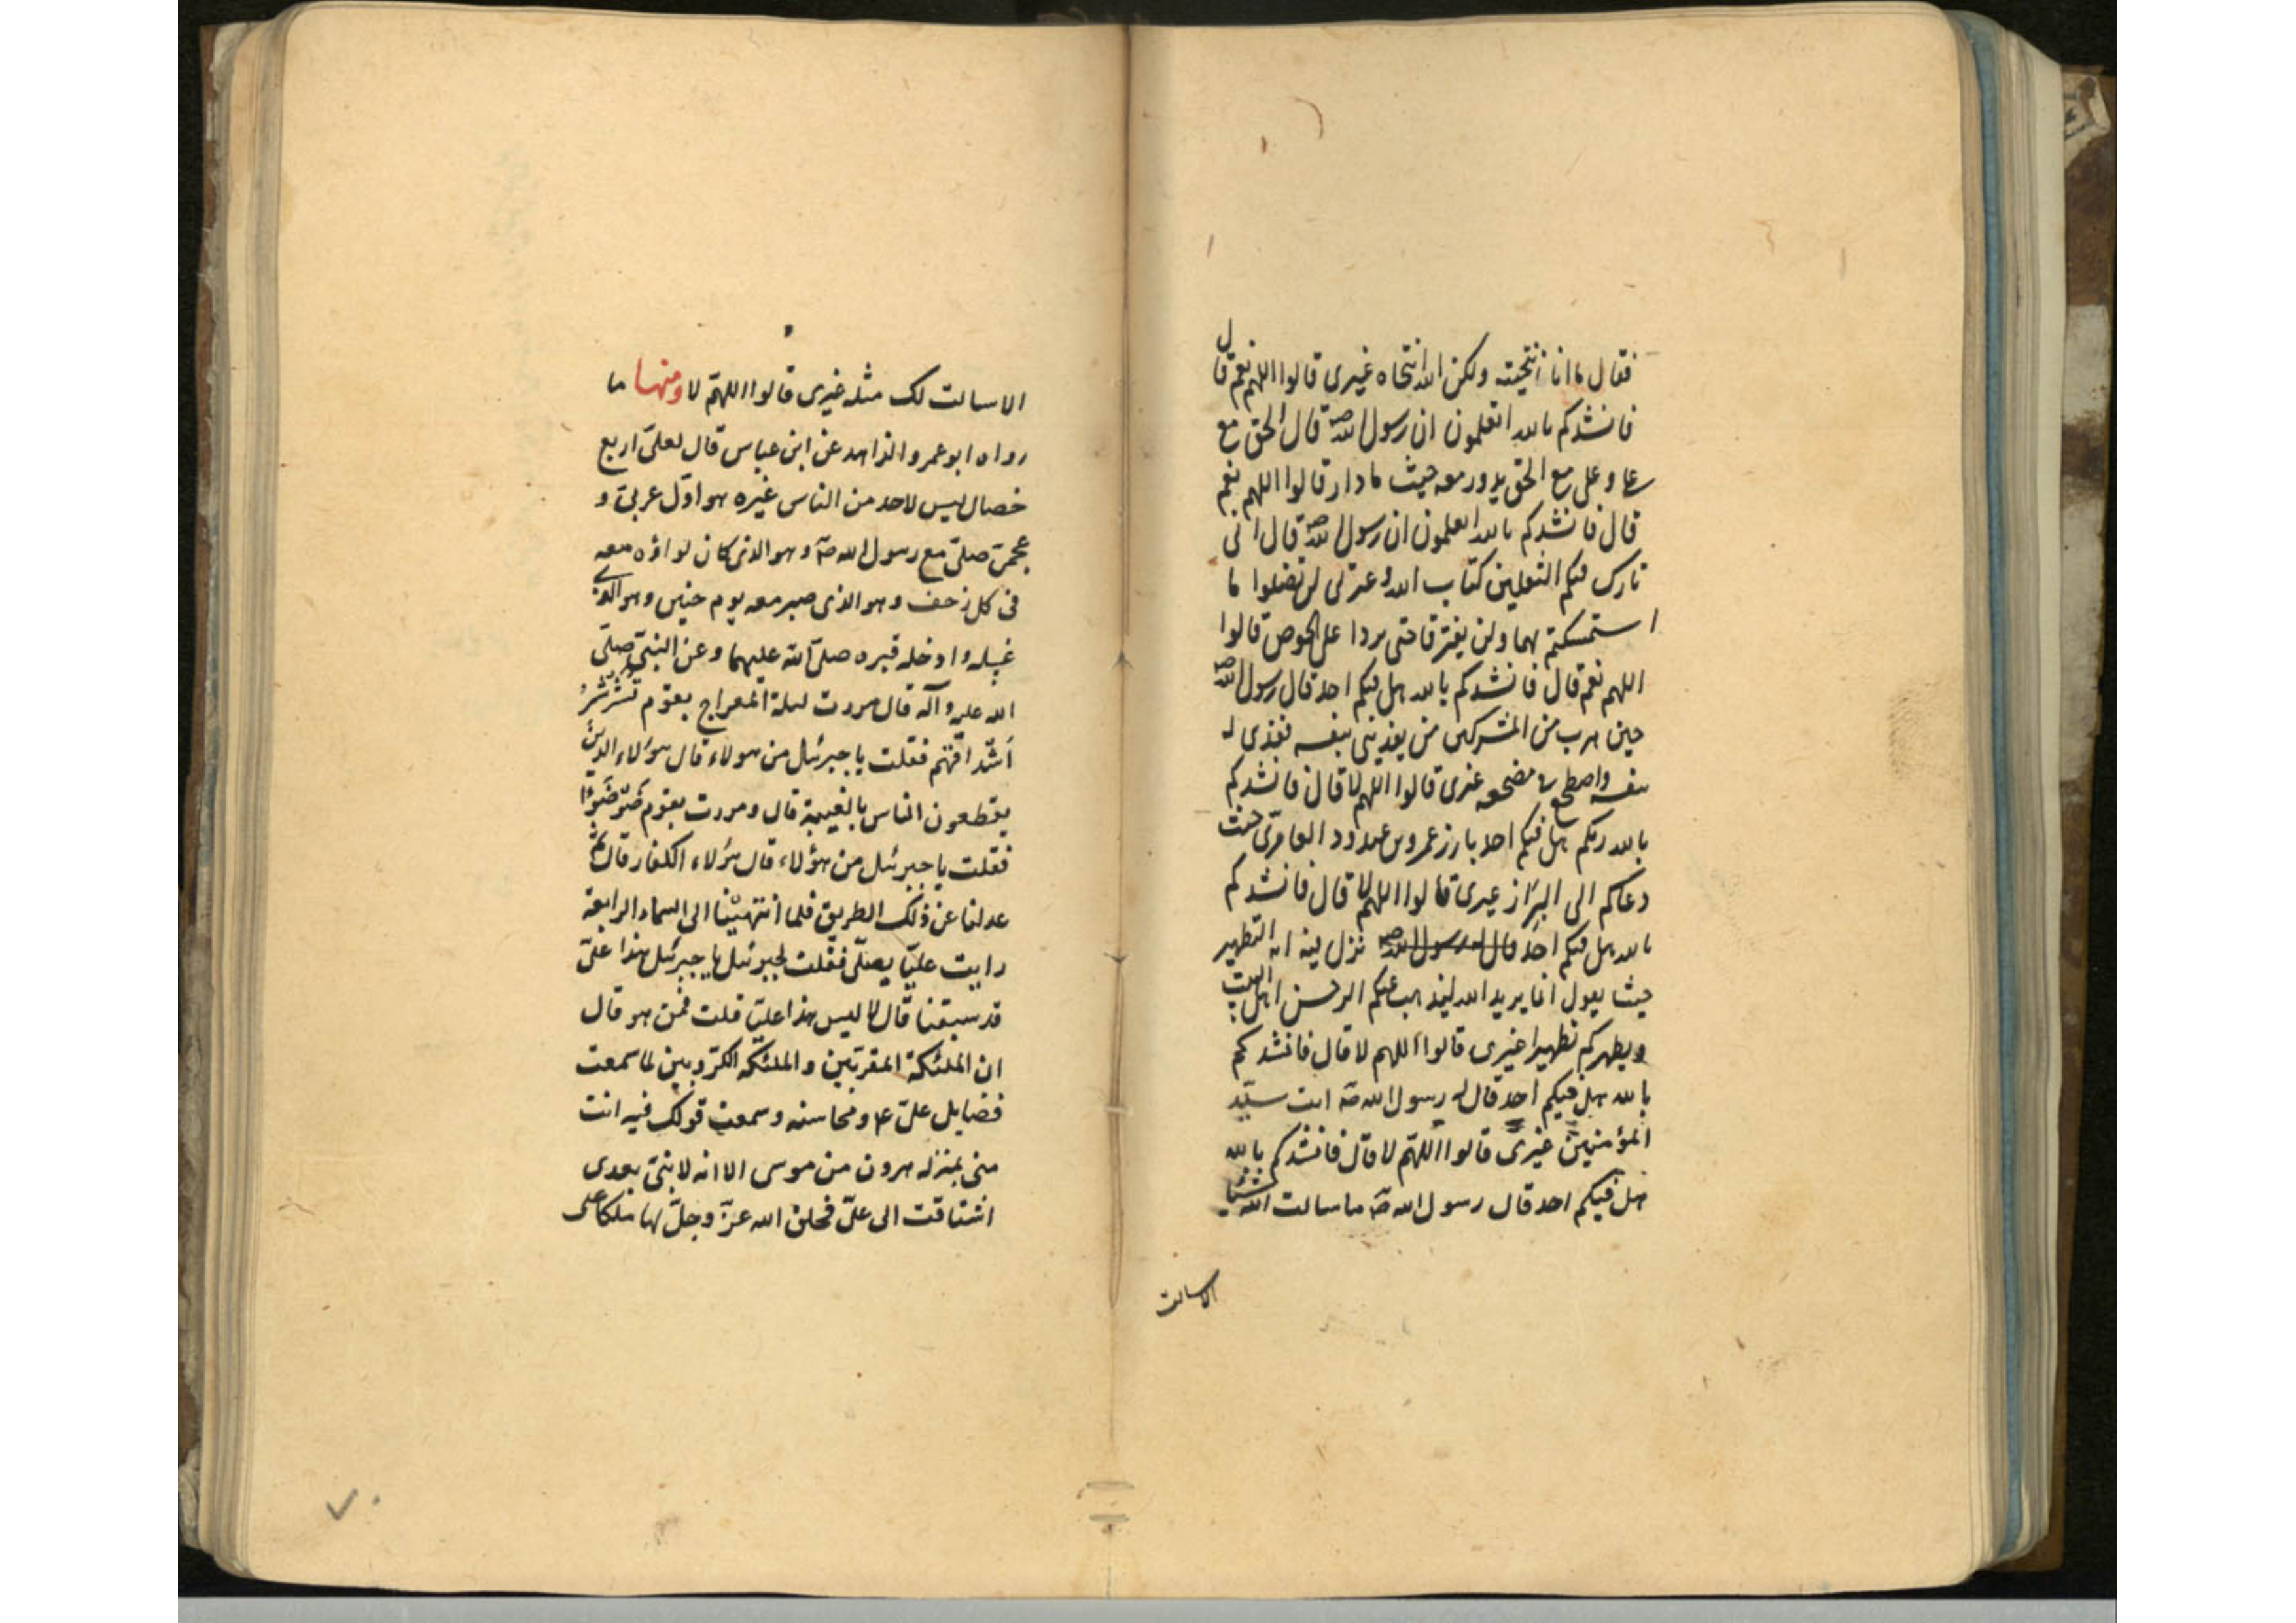 فقال ما انا انتجيته ولكن الله انتجاه غيرى قالوا اللهم نعم قال
فانشدكم بالله اتعلمون ان رسول الله صـ قال الحق مع
على وعلى مع الحق يدور معه حيث ما دار قالوا اللهم نعم
قال فانشدكم بالله اتعلمون ان رسول الله صـ قال انى
تارك فيكم الثقلين كتاب الله وعترتى لن تضلوا ما
استمسكتم بهما ولن يفترقا حتى يردا على الحوض قالوا
اللهم نعم قال فانشدكم بالله هل فيكم احد قال رسول الله صـ
حين هرب من المشركين من يفدينى بنفسه ففدى له
بنفسه واضطجع فى مضجعه غيرى قالوا اللهم لا قال فانشدكم
بالله ربكم هل فيكم احد بارز عمرو بن عبدود العامرى حيث
دعاكم الى البراز غيرى قالوا اللهم لا قال فانشدكم
بالله هل فيكم احد نزل فيه اية التطهير
حيث يقول انما يريد الله ليذهب عنكم الرجس اهل البيت
ويطهركم تطهيرا غيرى قالوا اللهم لا قال فانشدكم
بالله هل فيكم احد قال له رسول الله صـ انت سيّد
المؤمنين غيرى قالوا اللهّم لا قال فانشدكم بالله
هل فيكم احد قال رسول الله صـ ما سالت الله شيئا
الا سالت
الا سالت لك مثله غيرى قالوا اللهمّ لا ومنها ما
رواه ابو عمرو الزاهد عن ابن عباس قال لعلىّ اربع
خصال ليس لاحد من الناس غيره هو اوّل عربىّ و
عجمىّ صلىّ مع رسول الله صـ وهو الذى كان لواؤه معه
فى كل زحف وهو الذى صبر معه يوم حنين وهو الذى
غسله وادخله قبره صلى الله عليهما وعن النبىّ صلّى
الله عليه وآله قال مررت ليلة المعراج بقوم تُشَرْشَرُ
اَشْداقهم فقلت يا جبرئيل من هولاء قال هؤلاء الذين
يقطعون الناس بالغيبة قال ومررت بقوم ضَوْضَوْا
فقلت يا جبرئيل من هؤلاء قال هؤلاء الكفار قال ثمّ
عدلنا عن ذلك الطريق فلما انتهينا الى السماء الرابعة
رايت عليّا يصلّى فقلت لجبرئيل يا جبرئيل هذا علىّ
قد سبقنا قال لا ليس هذا عليّا قلت فمن هو قال
ان الملئكة المقرّبين والملئكه الكرّوبين لما سمعت
فضايل علىّ ع ومحاسنه وسمعت قولك فيه انت
منى بمنزله هرون من موسى الا انه لا نبىّ بعدى
اشتاقت الى علىّ فخلق الله عزّ وجلّ لها ملكا على